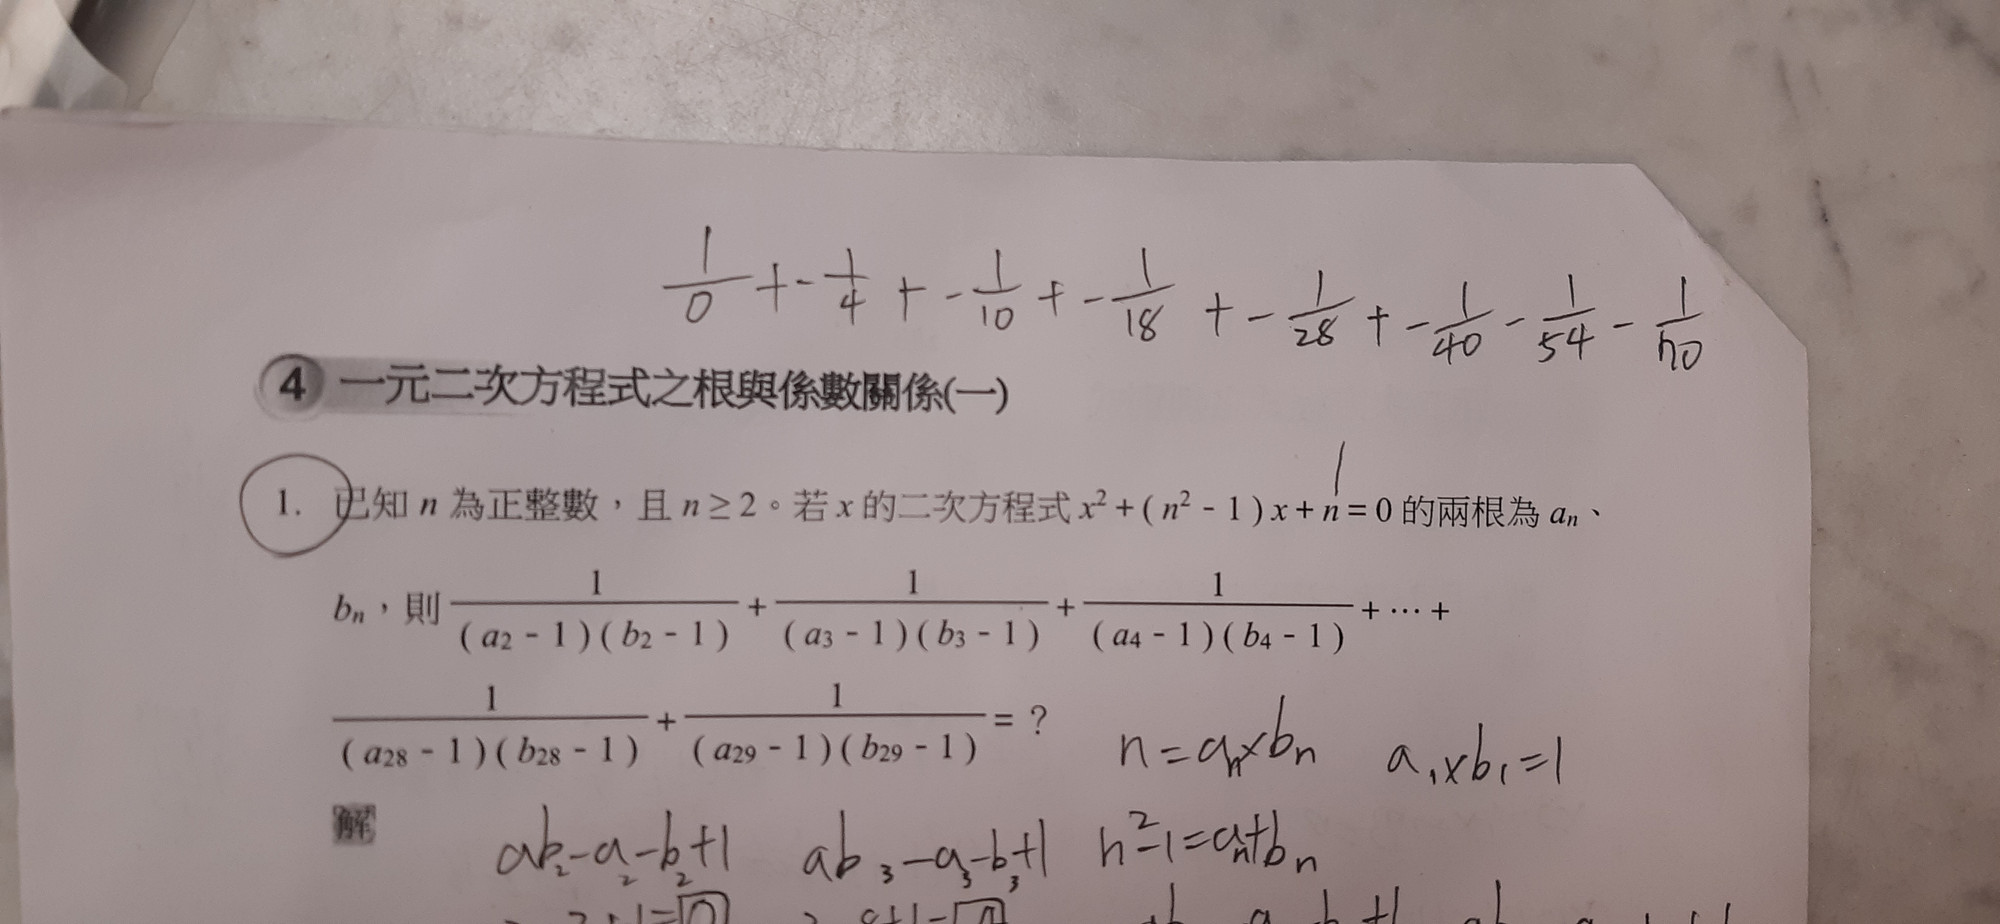 1/0 + - 1/4 + - 1/10 + - 1/18 + - 1/28 + - 1/40 - 1/54 - 1/70
4 一元二次方程式之根與係數關係(一)
1
1. 已知 n 為正整數，且 n ≥ 2。若 x 的二次方程式 x² + ( n² - 1 ) x + n = 0 的兩根為 aₙ、
bₙ，則 1/( a₂ - 1 )( b₂ - 1 ) + 1/( a₃ - 1 )( b₃ - 1 ) + 1/( a₄ - 1 )( b₄ - 1 ) + ⋯ +
1/( a₂₈ - 1 )( b₂₈ - 1 ) + 1/( a₂₉ - 1 )( b₂₉ - 1 ) = ？
n = aₙ × bₙ a₁ × b₁ = 1
解
ab₂ - a₂ - b₂ + 1 ab₃ - a₃ - b₃ + 1 n² - 1 = aₙ + bₙ